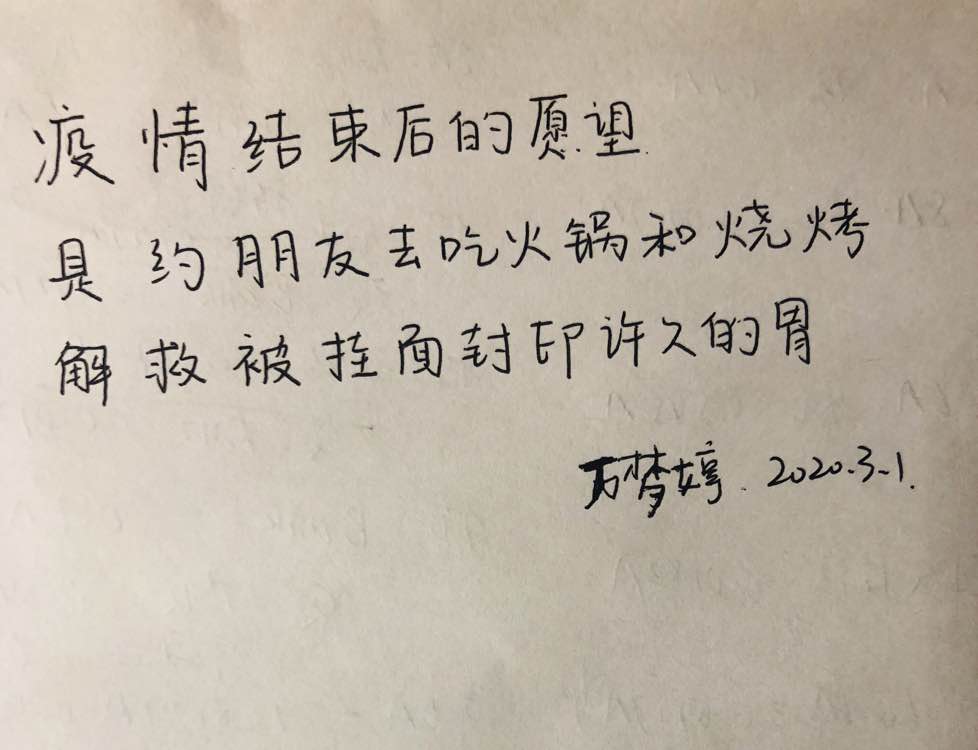 疫情结束后的愿望
是约朋友去吃火锅和烧烤
解救被挂面封印许久的胃
万梦婷. 2020.3.1.